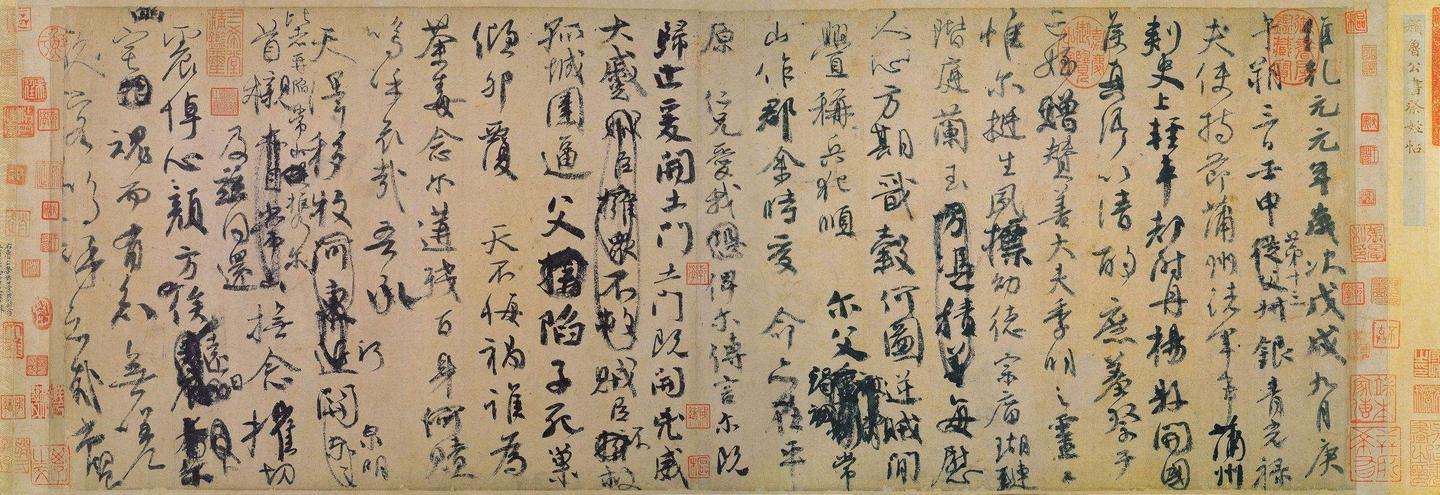 顏魯公書祭姪帖
維乾元元年歲次戊戌九月庚
午朔三日壬申第十三從父叔銀青光祿
夫使持節蒲州諸軍事蒲州
刺史上輕車都尉丹楊縣開國
侯真卿以清酌庶羞祭于
亡姪贈贊善大夫季明之靈曰
惟爾挺生夙標幼德宗廟瑚璉
階庭蘭玉方憑積善每慰
人心方期戩穀何圖逆賊閒
釁稱兵犯順爾父竭誠常
山作郡余時受命亦在平
原仁兄愛我恐俾爾傳言爾既
歸止爰開土門土門既開兇威
大蹙賊臣擁眾不救賊臣不救
孤城圍逼父擒陷子死巢
傾卵覆天不悔禍誰為
荼毒念爾遘殘百身何贖
嗚呼哀哉吾承
天澤移牧河東近河關泉明
比者再陷常山攜爾
首櫬及茲同還撫念摧切
震悼心顏方俟遠日
爾幽宅魂而有知無嗟久
客嗚呼哀哉尚饗